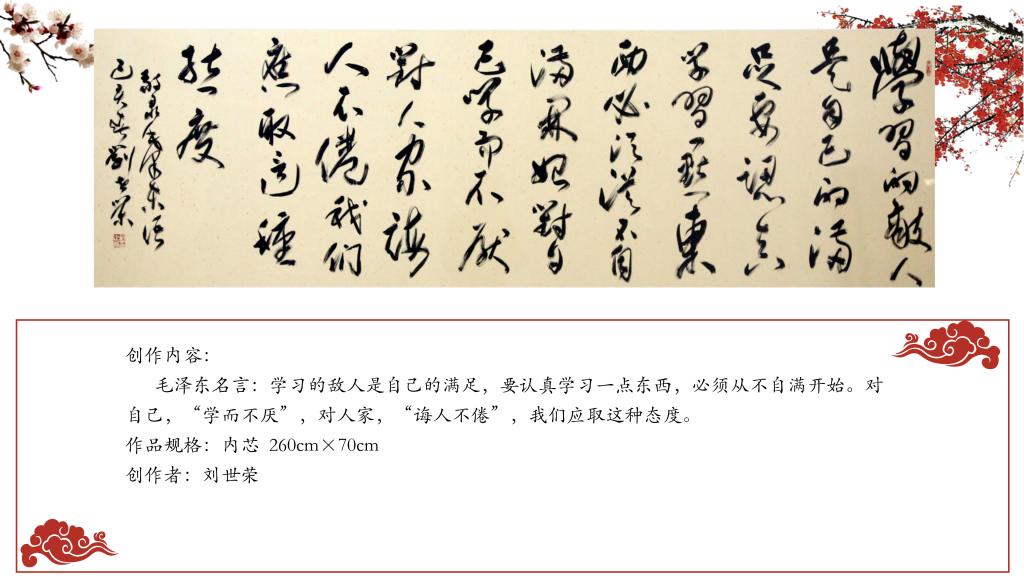 學習的敵人
是自己的滿
足要認真
學習一點東
西必須從不自
滿開始對自
己學而不厭
對人家誨
人不倦我們
應取這種
態度
敬录毛泽东语
己亥春劉世榮
创作内容：
毛泽东名言：学习的敌人是自己的满足，要认真学习一点东西，必须从不自满开始。对
自己，“学而不厌”，对人家，“诲人不倦”，我们应取这种态度。
作品规格：内芯 260cm×70cm
创作者：刘世荣